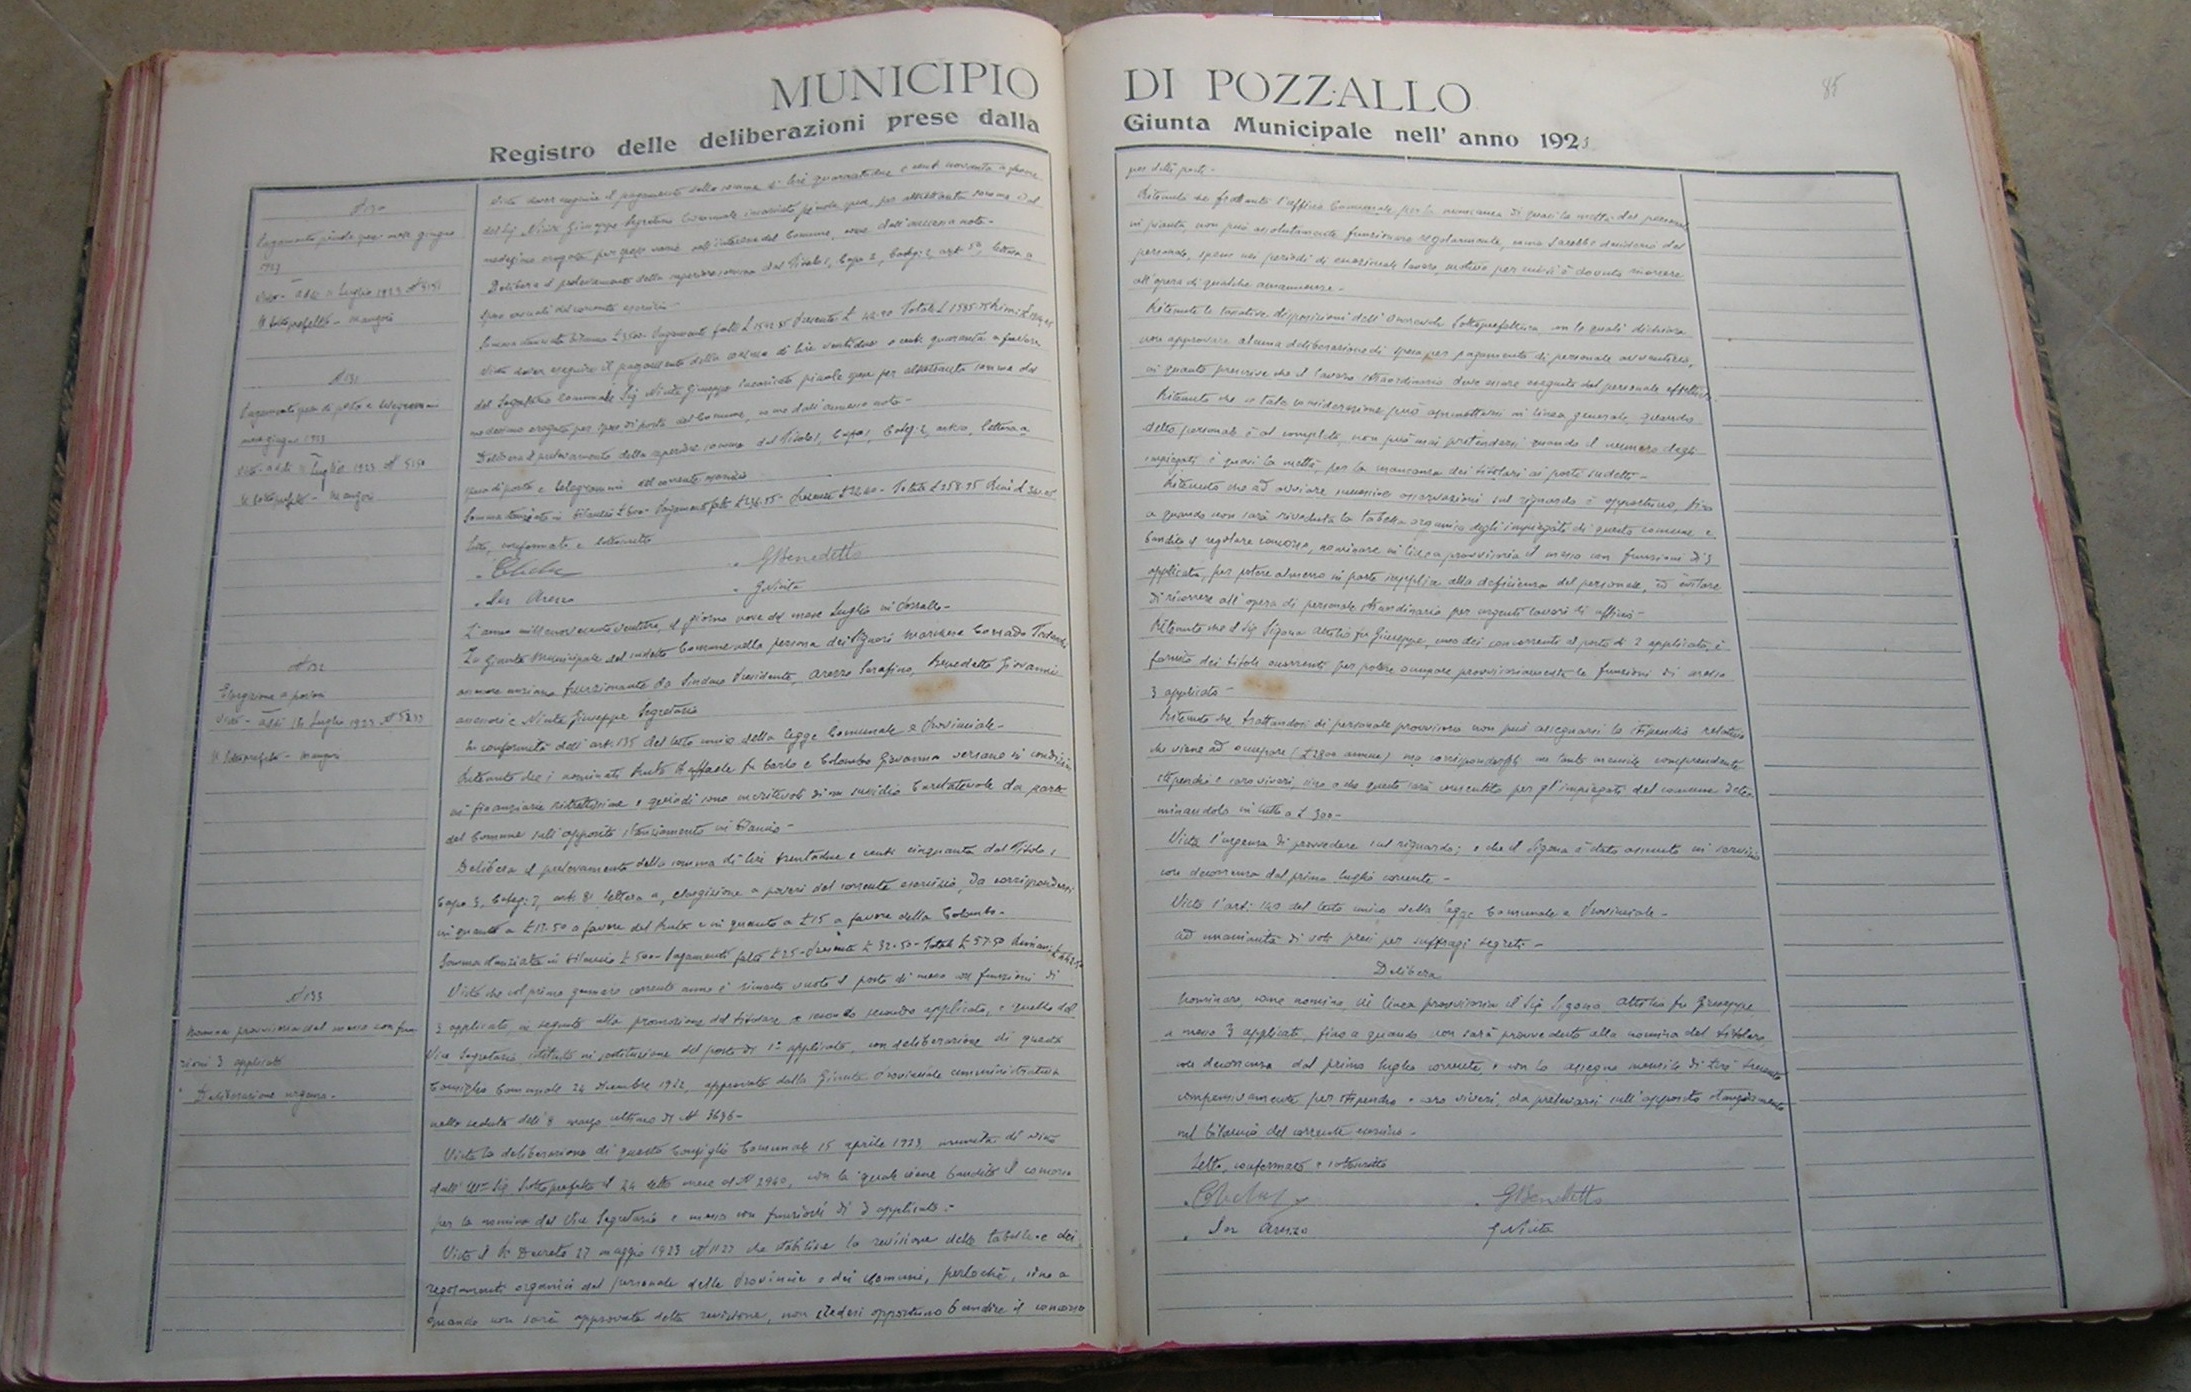 MUNICIPIO DI POZZALLO
Registro delle deliberazioni prese dalla Giunta Municipale nell'anno 1923
85
N 130
Pagamento piccole spese mese giugno
1923
Visto - addì 11 Luglio 1923 N 5151
Il Sottoprefetto - Mangoni
N 131
Pagamento spese di posta e telegrammi
mese giugno 1923
Visto - addì 11 Luglio 1923 N 5150
Il Sottoprefetto - Mangoni
N 132
Elargizione a poveri
Visto - addì 16 Luglio 1923 N 5233
Il Sottoprefetto - Mangoni
N 133
Nomina provvisoria del messo con fun
zioni 3 applicato
Deliberazione urgenza -
Visto dover eseguire il pagamento della somma di lire quarantadue e cent. novanta a favore
del Sig Ninta Giuseppe Segretario Comunale incaricato piccole spese, per altrettanta somma dal
medesimo erogata per spese varie nell'interesse del Comune, come dall'annessa nota -
Delibera il prelevamento della superiore somma dal Titolo 1, Capo 2, Categ: 2, art: 5º, lettera a
spese casuali del corrente esercizio -
Somma stanziata bilancio £ 3500 - Pagamenti fatti £ 1542.85 Presente £ 42.90 Totale £ 1585.75
Visto dover eseguire il pagamento della somma di lire ventidue e cent. quaranta a favore
del Segretario Comunale Sig Ninta Giuseppe incaricato piccole spese per altrettanta somma dal
medesimo erogata per spese di posta del Comune, come dall'annessa nota -
Delibera il prelevamento della superiore somma dal Titolo 1, Capo 1, Categ: 2, art. 10, lettera a
spese di posta e telegrammi del corrente esercizio
Somma stanziata in bilancio £ 600 - Pagamenti fatti £ 236.55 - Presente £ 22.40 - Totale £ 258.95
Letto, confermato e sottoscritto
GBenedetto
Ser Arezzo
G Ninta
L'anno millenovecentoventitre, il giorno nove del mese Luglio in Pozzallo -
La Giunta Municipale del suddetto Comune nella persona dei Signori Corrado
assessore anziano funzionante da Sindaco Presidente, Arezzo Serafino, Benedetto Giovanni
assessori e Ninta Giuseppe Segretario
In conformità dell'art. 135 del testo unico della legge Comunale e Provinciale -
Ritenuto che i nominati Raffaele fu Carlo e Colombo Giovanna versano in condizio
ni finanziarie ristrettissime e quindi sono meritevoli di un sussidio caritatevole da parte
del Comune sull'apposito stanziamento in bilancio -
Delibera il prelevamento della somma di lire trentadue e cent. cinquanta dal Titolo 1
Capo 3, Categ: 7, art. 81 lettera a, elargizione a poveri del corrente esercizio, da corrispondersi
in quanto a £ 17.50 a favore del e in quanto a £ 15 a favore della Colombo -
Somma stanziata in bilancio £ 500 - Pagamenti fatti £ 25 - Presente £ 32.50 - Totale £ 57.50
Visto che col primo gennaro corrente anno è rimasto vuoto il posto di messo con funzioni di
3 applicato, in seguito alla promozione del titolare a secondo applicato, e quello del
Vice Segretario istituito in sostituzione del posto di 1º applicato, con deliberazione di questo
Consiglio Comunale 24 Dicembre 1922, approvata dalla Giunta Provinciale amministrativa
nella seduta dell'8 marzo ultimo di N 3636 -
Vista la deliberazione di questo Consiglio Comunale 15 aprile 1923, munita di visto
dall'Ill.mo Sig. Sottoprefetto il 24 detto mese al Nº 2940, con la quale viene bandito il concorso
per la nomina del Vice Segretario e messo con funzioni di 3 applicato -
Visto il R. Decreto 27 maggio 1923 N 1177 che stabilisce la revisione delle tabelle e dei
regolamenti organici del personale delle Provincie e dei Comuni, perlochè, sino a
quando non sarà approvata detta revisione, non credesi opportuno bandire il concorso
per detti posti -
Ritenuto che frattanto l'ufficio Comunale, per la mancanza di quasi la metà del personale
in pianta non può assolutamente funzionare regolarmente, come sarebbe desiderio del
personale, specie nei periodi di eccezionale lavoro, motivo per cui si è dovuto ricorrere
all'opera di qualche amanuense -
Ritenute le tassative disposizioni dell'Onorevole Sottoprefettura con le quali dichiara
non approvare alcuna deliberazione di spesa per pagamento di personale avventizio,
in quanto prescrive che il lavoro straordinario deve essere eseguito dal personale effettivo
Ritenuto che se tale considerazione può ammettersi in linea generale, quando
detto personale è al completo, non può mai pretendersi quando il numero degli
impiegati è quasi la metà, per la mancanza dei titolari ai posti sudetti -
Ritenuto che ad ovviare successive osservazioni sul riguardo è opportuno, sino
a quando non sarà riveduta la tabella organica degli impiegati di questo comune e
bandito il regolare concorso, nominare in linea provvisoria il messo con funzioni di 3
applicato, per potere almeno in parte supplire alla deficienza del personale, ed evitare
di ricorrere all'opera di personale straordinario per urgenti lavori di ufficio -
Ritenuto che il Sig Sigona Attilio fu Giuseppe, uno dei concorrenti al posto di 2 applicato, è
fornito dei titoli occorrenti per potere occupare provvisoriamente le funzioni di messo
3 applicato -
Ritenuto che trattandosi di personale provvisorio non può assegnarsi lo stipendio relativo
che viene ad occupare (£ 2800 annue) ma corrispondergli un tanto mensile comprendente
stipendio e caro viveri, sino a che questo sarà consentito per gl'impiegati del comune deter
minandolo in tutto a £ 300 -
Vista l'urgenza di provvedere sul riguardo; e che il Sigona è stato assunto in servizio
con decorrenza dal primo luglio corrente -
Visto l'art: 140 del testo unico della legge Comunale e Provinciale -
ad unanimità di voti presi per suffragi segreti -
Delibera
Nominare, come nomina, in linea provvisoria il Sig Sigona Attilio fu Giuseppe
a messo 3 applicato, fino a quando non sarà provveduto alla nomina del titolare
con decorrenza dal primo luglio corrente, e con lo assegno mensile di lire trecento
complessivamente per stipendio e caro viveri, da prelevarsi sull'apposito stanziamento
nel bilancio del corrente esercizio -
Letto, confermato e sottoscritto
GBenedetto
Ser Arezzo
G Ninta